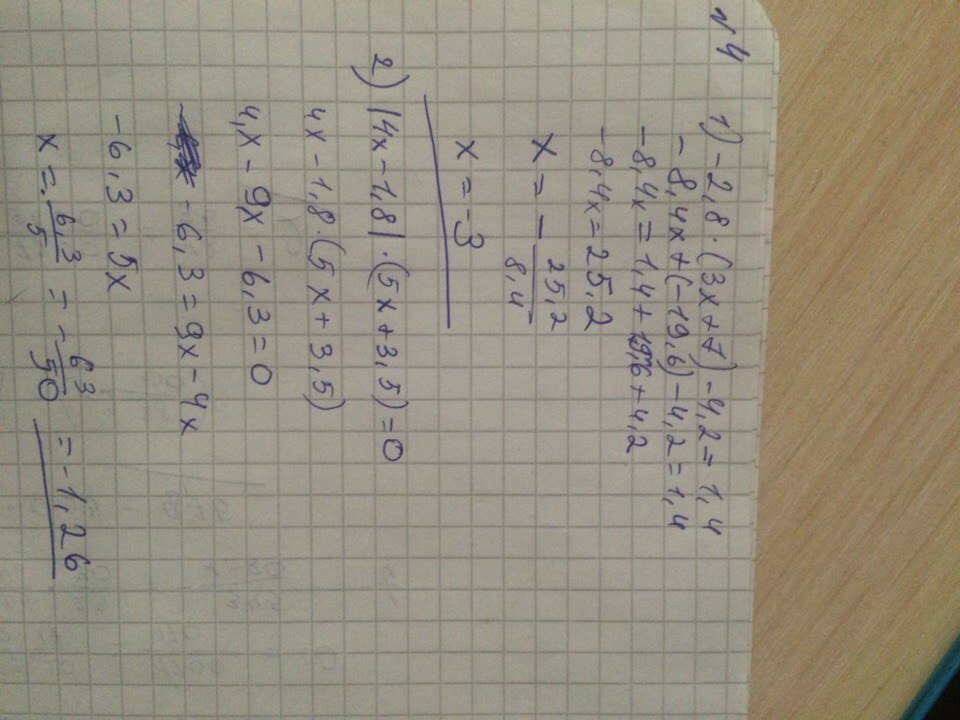 №4
1) -2,8·(3x+7)-4,2=1,4
-8,4x+(-19,6)-4,2=1,4
-8,4x=1,4+19,6+4,2
-8,4x=25,2
x=-25,2/8,4
x=-3
2) |4x-1,8|·(5x+3,5)=0
4x-1,8·(5x+3,5)
4x-9x-6,3=0
-6,3=9x-4x
-6,3=5x
x=-6,3/5=-63/50=-1,26